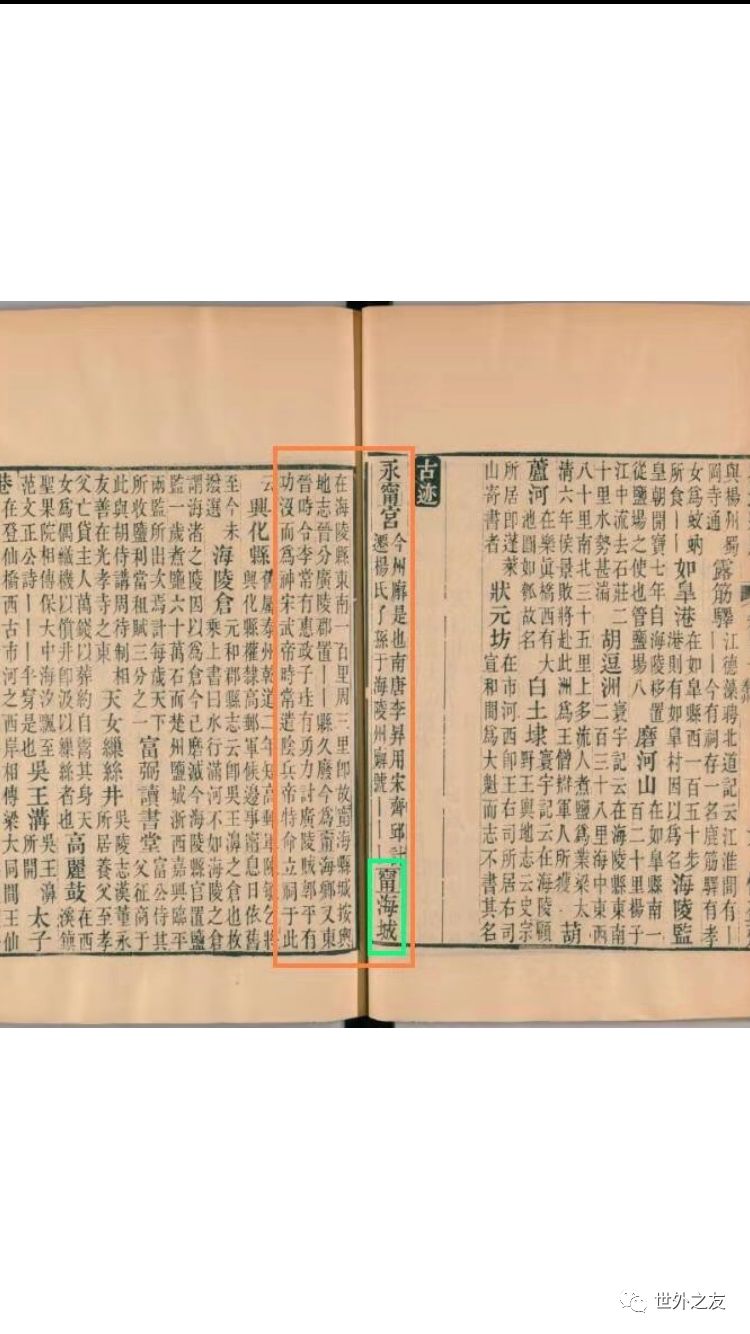 與楊州蜀
岡寺通
露筋驛
江德藻聘北道記云江淮間有｜
｜今有祠存一名鹿筋驛有孝
女為蚊蚋
所食｜｜
如皐港
在如皐縣西一百五十步
港則有如皐村因以為名
海陵監
皇朝開寶七年自海陵移置
從鹽場之使也管鹽場八
磨河山
在如皐縣南一
百二十里楊子
江中流去石莊二
十里水勢甚湍
胡逗洲
寰宇記云在海陵縣東南
二百三十八里海中東西
八十里南北三十五里上多流人煮鹽為業梁太
清六年侯景敗將赴此洲為王僧辯軍人所獲
葫
蘆河
在樂真橋西有大
池圓如瓠故名
白土埭
寰宇記云在海陵顧
野王輿地志云史宗
所居即蓬萊
山寄書者
狀元坊
在市河西即王右司所居右司
宣和間為大魁而志不書其名
古迹
永甯宮
今州廨是也南唐李昪用宋齊邱計
遷楊氏子孫于海陵州廨號｜｜
甯海城
在海陵縣東南一百里周三里即故甯海縣城按輿
地志晉分廣陵郡置｜｜縣久廢今為甯海鄉又東
晉時令李常有惠政子珪有勇力討廣陵賊郭平有
功沒而為神宋武帝時常遣陰兵帝特命立祠于此
云
興化縣
舊屬泰州乾道二年知高郵軍陳敏乞將
興化縣權隸高郵軍候邊事甯息日依舊
至今未
撥選
海陵倉
元和郡縣志云即吳王濞之倉也枚
乘上書曰水行滿河不如海陵之倉
謂海渚之陵因以為倉今已磨滅今海陵縣官置鹽
監一歲煮鹽六十萬石而楚州鹽城浙西嘉興臨平
兩監所出次焉計每歲天下
所收鹽利當租賦三分之一
富弼讀書堂
富公侍其
父征商于
此與胡待講周待制相
友善在光孝寺之東
天女繅絲井
吳陵志漢董永
所居養父至孝
父亡貸主人萬錢以葬約自鬻其身天
女為偶織機以償井即汲以繅絲者也
高麗鼓
在西
溪鎮
聖果院相傳保大中海汐飄至
范文正公詩｜｜｜半穿是也
吳王溝
吳王濞
所開
太子
巷
在登仙橋西古市河之西岸相傳梁大同間王仙
世外之友